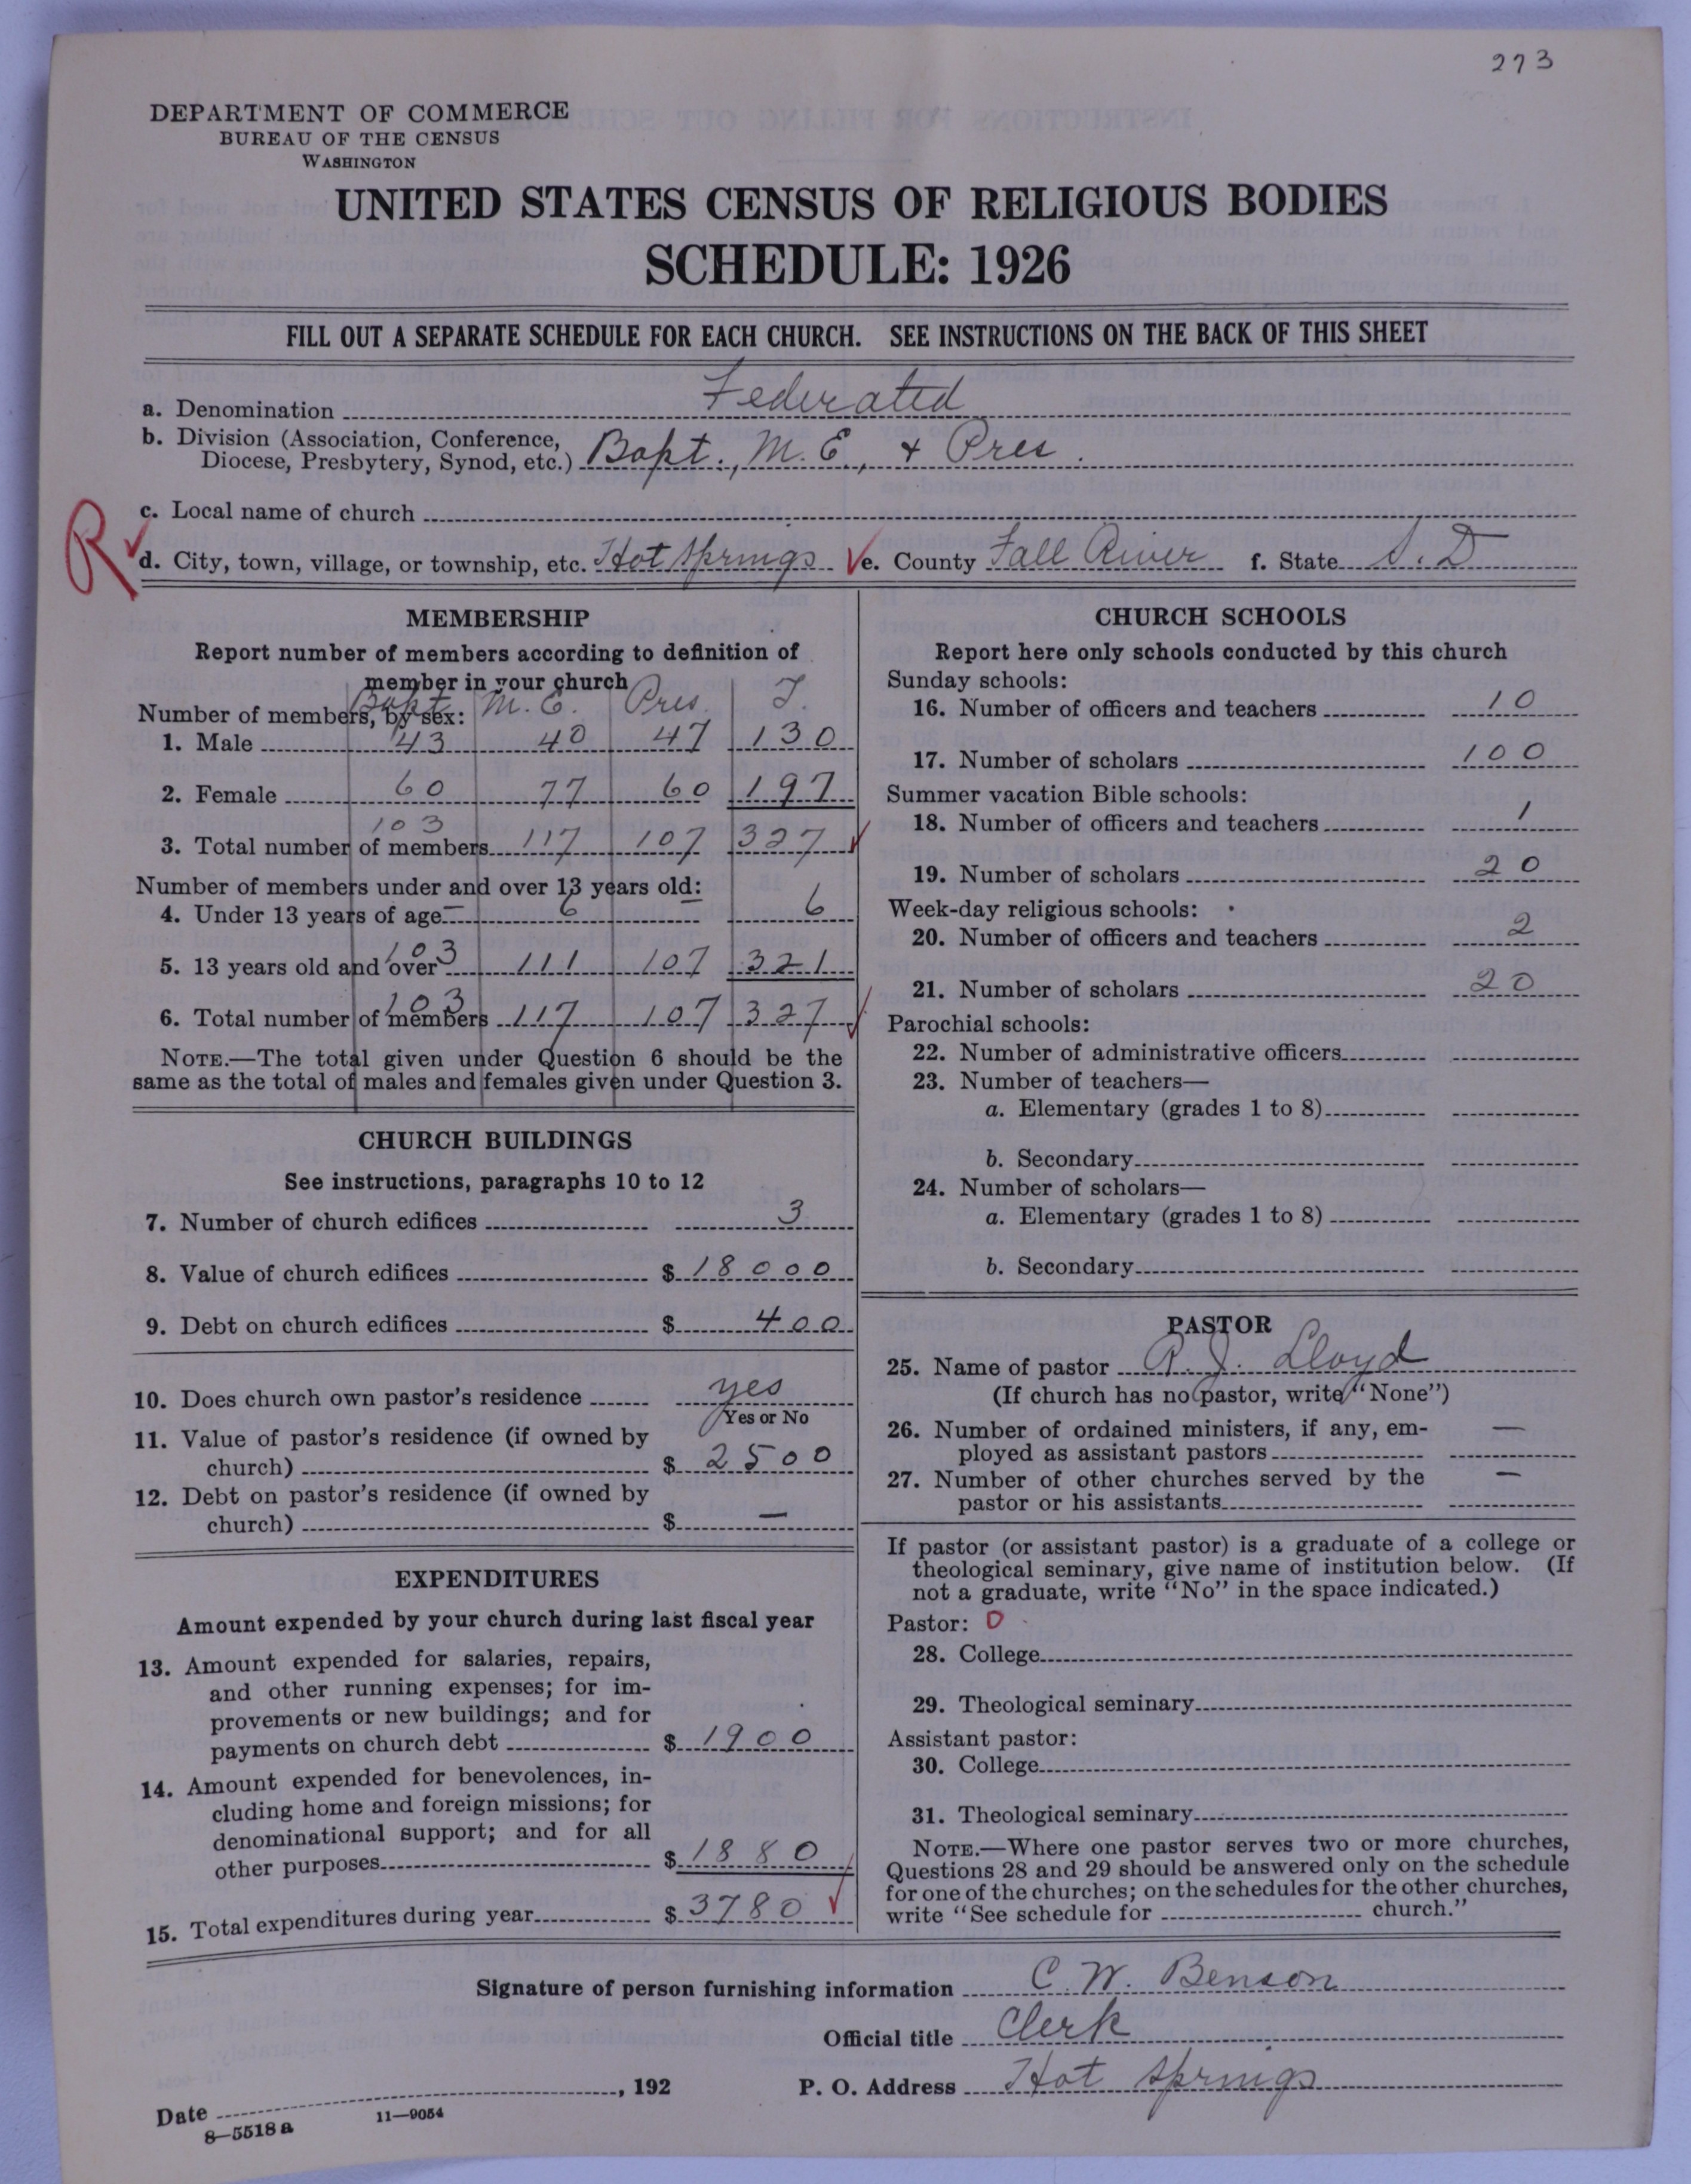 273
DEPARTMENT OF COMMERCE
BUREAU OF THE CENSUS
WASHINGTON
UNITED STATES CENSUS OF RELIGIOUS BODIES
SCHEDULE: 1926
FILL OUT A SEPARATE SCHEDULE FOR EACH CHURCH. SEE INSTRUCTIONS ON THE BACK OF THIS SHEET
a. Denomination Federated
b. Division (Association, Conference,
Diocese, Presbytery, Synod, etc.) Bapt., M.E., & Pres.
c. Local name of church
R d. City, town, village, or township, etc. Hot Springs e. County Fall River f. State S.D
MEMBERSHIP
Report number of members according to definition of
member in your church
Number of members, by sex: Bapt. M.E. Pres. T.
1. Male 43 40 47 130
2. Female 60 77 60 197
3. Total number of members 103 117 107 327
Number of members under and over 13 years old:
4. Under 13 years of age — 6 — 6
5. 13 years old and over 103 111 107 321
6. Total number of members 103 117 107 327
NOTE.—The total given under Question 6 should be the
same as the total of males and females given under Question 3.
CHURCH BUILDINGS
See instructions, paragraphs 10 to 12
7. Number of church edifices 3
8. Value of church edifices $ 18000
9. Debt on church edifices $ 400
10. Does church own pastor's residence yes
Yes or No
11. Value of pastor's residence (if owned by
church) $ 2500
12. Debt on pastor's residence (if owned by
church) $ —
EXPENDITURES
Amount expended by your church during last fiscal year
13. Amount expended for salaries, repairs,
and other running expenses; for im-
provements or new buildings; and for
payments on church debt $ 1900
14. Amount expended for benevolences, in-
cluding home and foreign missions; for
denominational support; and for all
other purposes $ 1880
15. Total expenditures during year $ 3780
CHURCH SCHOOLS
Report here only schools conducted by this church
Sunday schools:
16. Number of officers and teachers 10
17. Number of scholars 100
Summer vacation Bible schools:
18. Number of officers and teachers 1
19. Number of scholars 20
Week-day religious schools:
20. Number of officers and teachers 2
21. Number of scholars 20
Parochial schools:
22. Number of administrative officers
23. Number of teachers—
a. Elementary (grades 1 to 8)
b. Secondary
24. Number of scholars—
a. Elementary (grades 1 to 8)
b. Secondary
PASTOR
25. Name of pastor R. J. Lloyd
(If church has no pastor, write "None")
26. Number of ordained ministers, if any, em-
ployed as assistant pastors —
27. Number of other churches served by the
pastor or his assistants —
If pastor (or assistant pastor) is a graduate of a college or
theological seminary, give name of institution below. (If
not a graduate, write "No" in the space indicated.)
Pastor: 0
28. College
29. Theological seminary
Assistant pastor:
30. College
31. Theological seminary
NOTE.—Where one pastor serves two or more churches,
Questions 28 and 29 should be answered only on the schedule
for one of the churches; on the schedules for the other churches,
write "See schedule for church."
Signature of person furnishing information C. W. Benson
Official title Clerk
Date , 192 P. O. Address Hot Springs
8—5518 a 11—9054